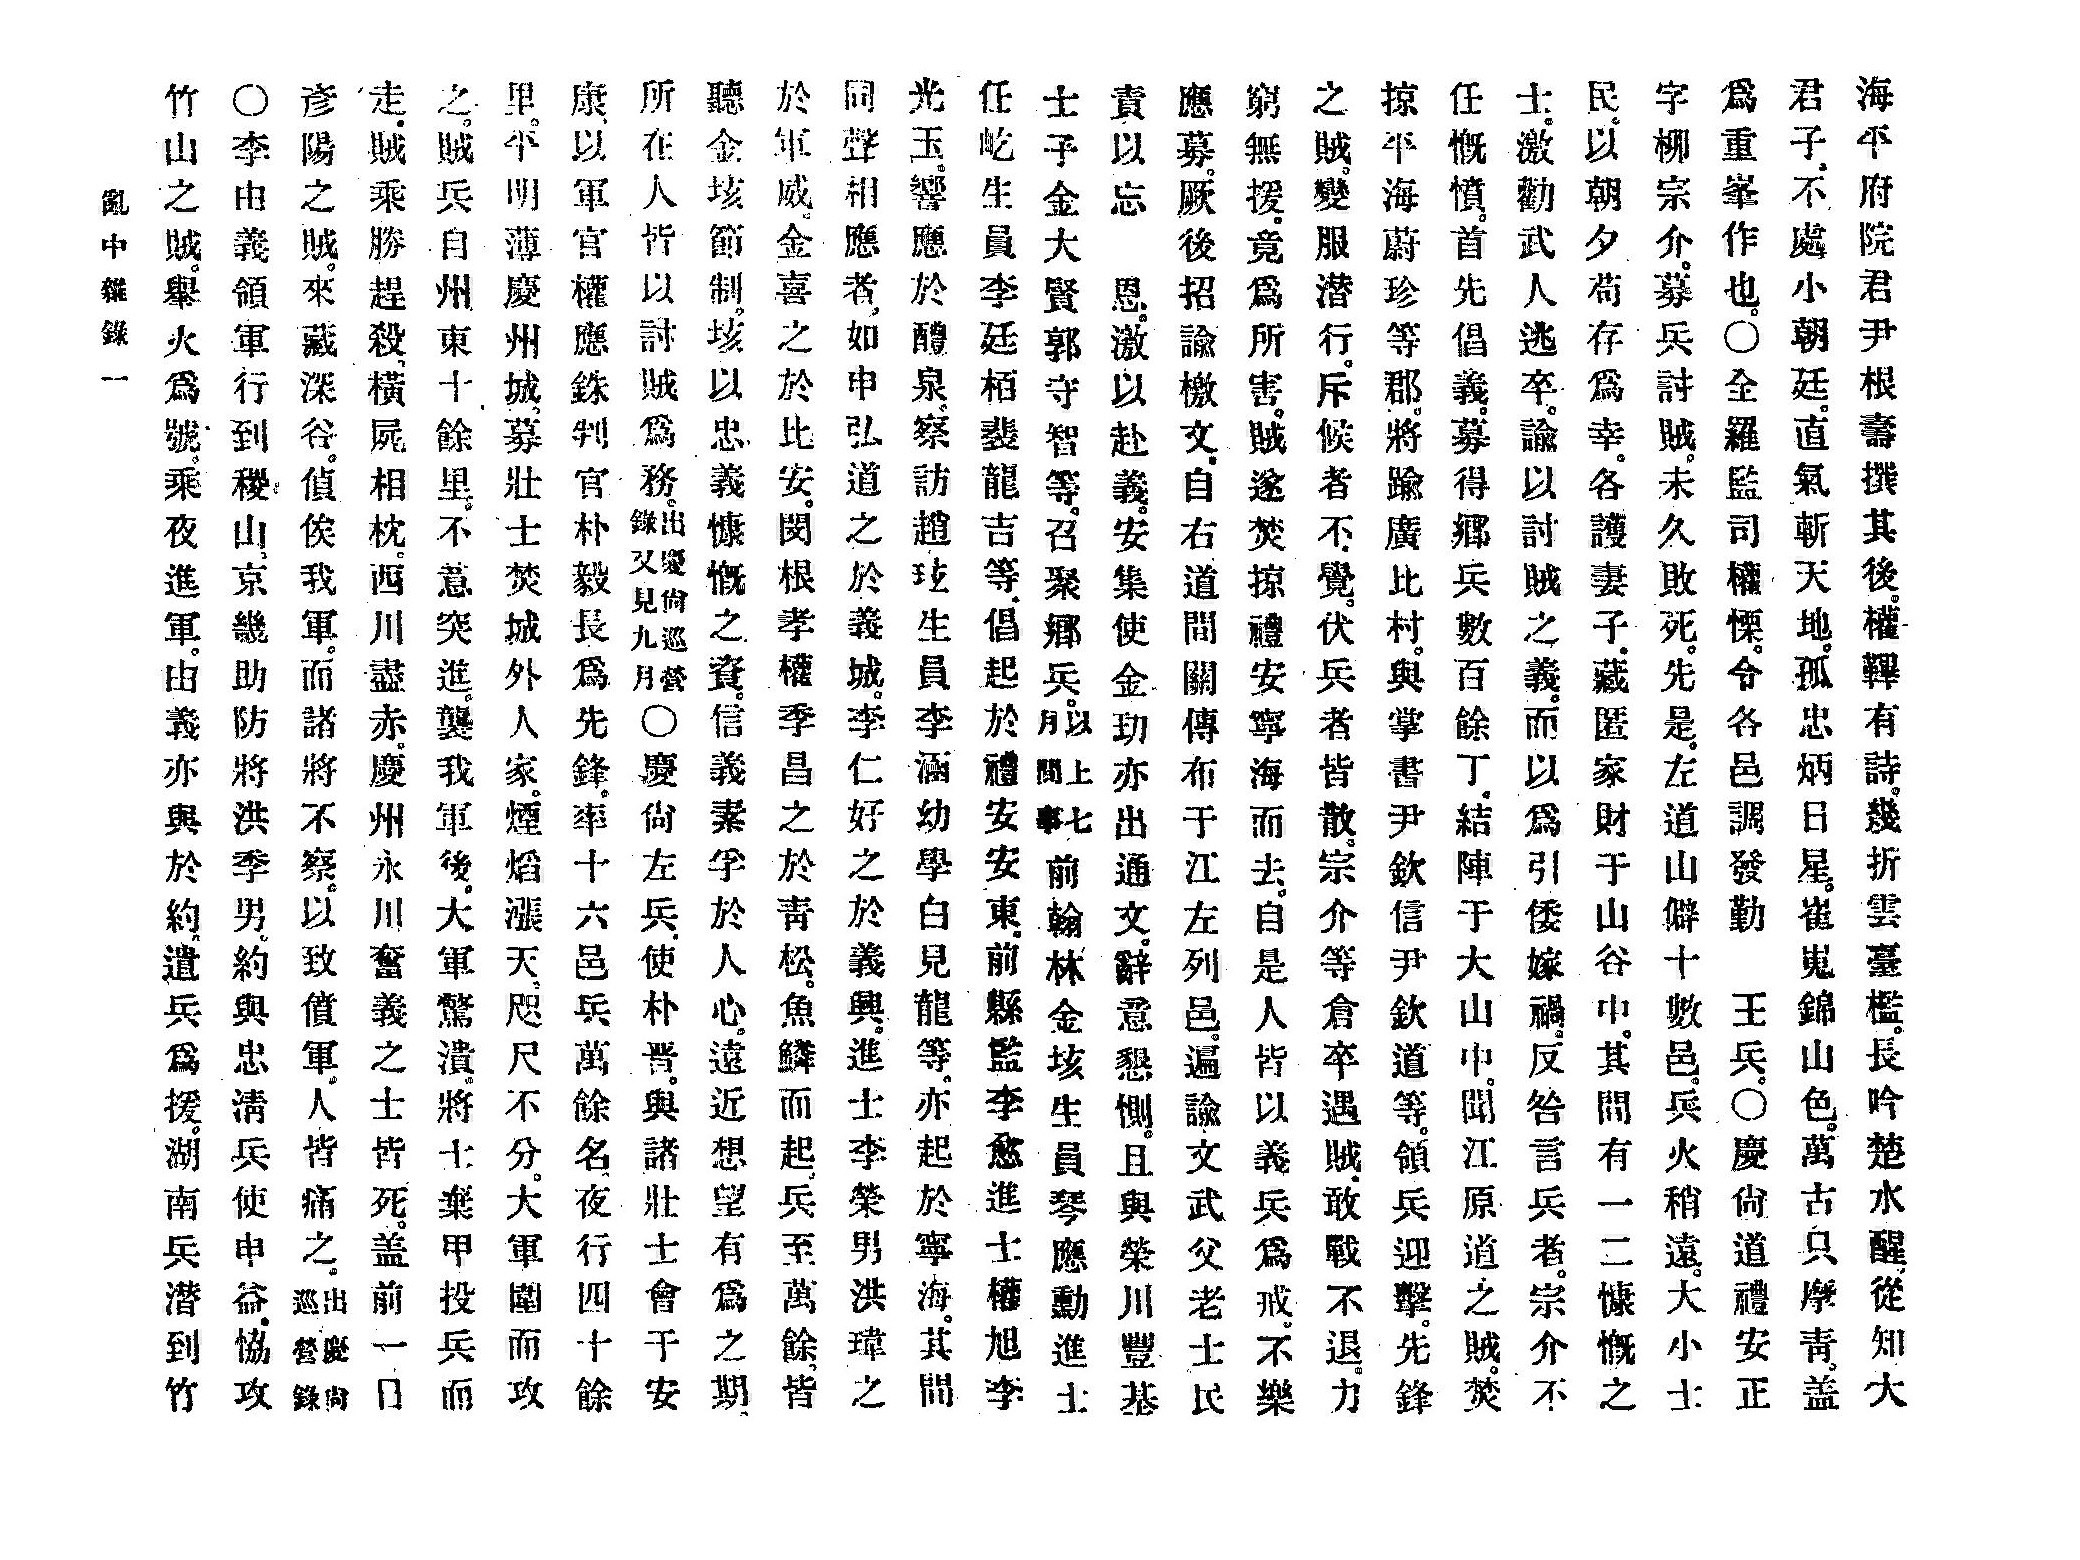 海平府院君尹根壽撰其後。權鞸有詩。幾折雲臺檻。長吟楚水醒。從知大
君子。不處小朝廷。直氣斬天地。孤忠炳日星。崔嵬錦山色。萬古只摩靑。盖
爲重峯作也。○全羅監司權慄。令各邑調發勤　王兵。○慶尙道禮安正
字柳宗介。募兵討賊。未久敗死。先是。左道山僻十數邑。兵火稍遠。大小士
民。以朝夕苟存爲幸。各護妻子。藏匿家財于山谷中。其間有一二慷慨之
士。激勸武人逃卒。諭以討賊之義。而以爲引倭嫁禍。反咎言兵者。宗介不
任慨憤。首先倡義。募得鄕兵數百餘丁。結陣于大山中。聞江原道之賊。焚
掠平海蔚珍等郡。將踰廣比村。與掌書尹欽信尹欽道等。領兵迎擊。先鋒
之賊。變服潛行。斥候者不覺。伏兵者皆散。宗介等倉卒遇賊。敢戰不退。力
窮無援。竟爲所害。賊遂焚掠禮安寧海而去。自是人皆以義兵爲戒。不樂
應募。厥後招諭檄文。自右道間關傳布于江左列邑。遍諭文武父老士民
責以忘　恩。激以赴義。安集使金玏亦出通文。辭意懇惻。且與榮川豐基
士子金大賢郭守智等。召聚鄕兵。以上七月間事 前翰林金垓生員琴應勳進士
任屹生員李廷栢裴龍吉等。倡起於禮安安東。前縣監李愈進士權旭李
光玉。響應於醴泉。察訪趙玹生員李涵幼學白見龍等。亦起於寧海。其間
同聲相應者。如申弘道之於義城。李仁好之於義興。進士李榮男洪瑋之
於軍威。金喜之於比安。閔根孝權季昌之於靑松。魚鱗而起。兵至萬餘。皆
聽金垓節制。垓以忠義慷慨之資。信義素孚於人心。遠近想望有爲之期。
所在人皆以討賊爲務。出慶尙巡營錄又見九月 ○慶尙左兵使朴晋。與諸壯士會于安
康。以軍官權應銖判官朴毅長爲先鋒。率十六邑兵萬餘名。夜行四十餘
里。平明薄慶州城。募壯士焚城外人家。煙焰漲天。咫尺不分。大軍圍而攻
之。賊兵自州東十餘里。不意突進。襲我軍後。大軍驚潰。將士棄甲投兵而
走。賊乘勝趕殺。橫屍相枕。西川盡赤。慶州永川奮義之士皆死。盖前一日
彦陽之賊。來藏深谷。偵俟我軍。而諸將不察。以致僨軍。人皆痛之。出慶尙巡營錄
○李由義領軍行到稷山。京畿助防將洪季男。約與忠淸兵使申益。恊攻
竹山之賊。擧火爲號。乘夜進軍。由義亦與於約。遣兵爲援。湖南兵潛到竹
亂中雜錄一